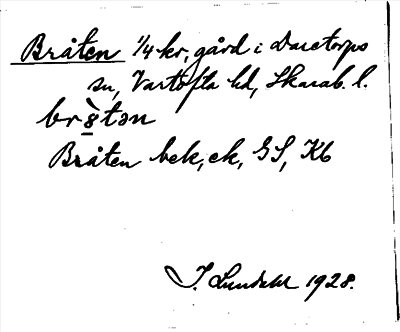 Bråten 1/4 kr, gård i Daretorps
sn, Vartofta hd, Skarab. l.
br8̀tən
Bråten bek, ek, GS, Kb
I. Lundahl 1928.